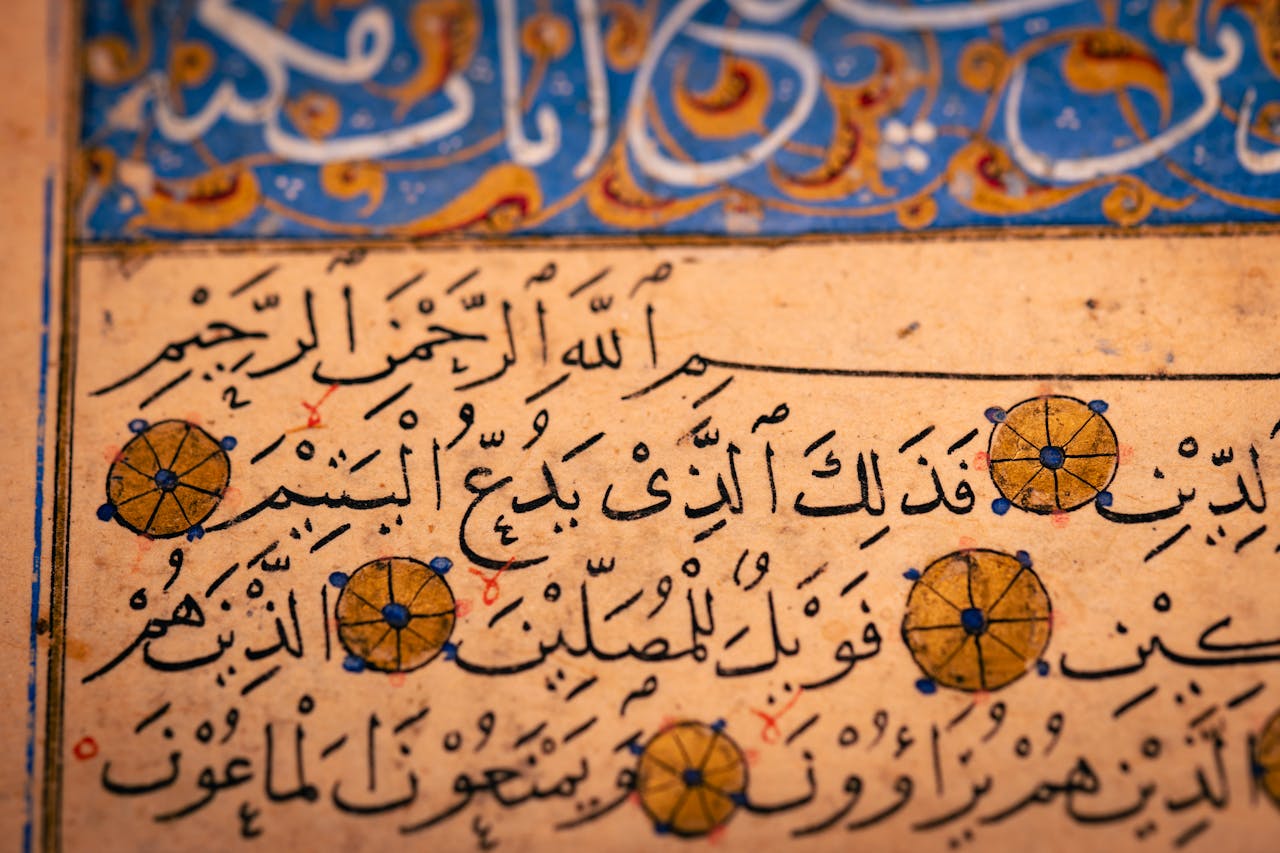 آيات مكية
سم ٱلله ٱلرَّحْمٰنِ ٱلرَّحِيمِ
لدِّيْنِ فَذَٰلِكَ ٱلَّذِىْ يَدُعُّ الْيَتِيْمَ
كِيْنِ فَوَيْلٌ لِلْمُصَلِّيْنَ الَّذِيْنَ هُمْ
الَّذِيْنَ هُمْ يُرَاؤُوْنَ وَيَمْنَعُوْنَ الْمَاعُوْنَ